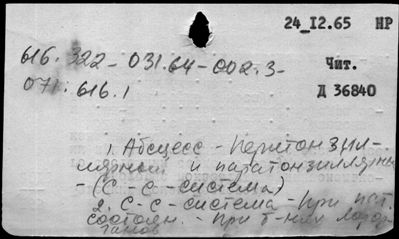 24_I2.65 НР
616.322-031.64-002.3-
Чит.
071.616.1
Д 36840
1. Абсцесс - перитонзил-
лярный и паратонзиллярный
- (С. - С - система)
2. С-С - система - При пат.
состоян. - При б-нях
ганов